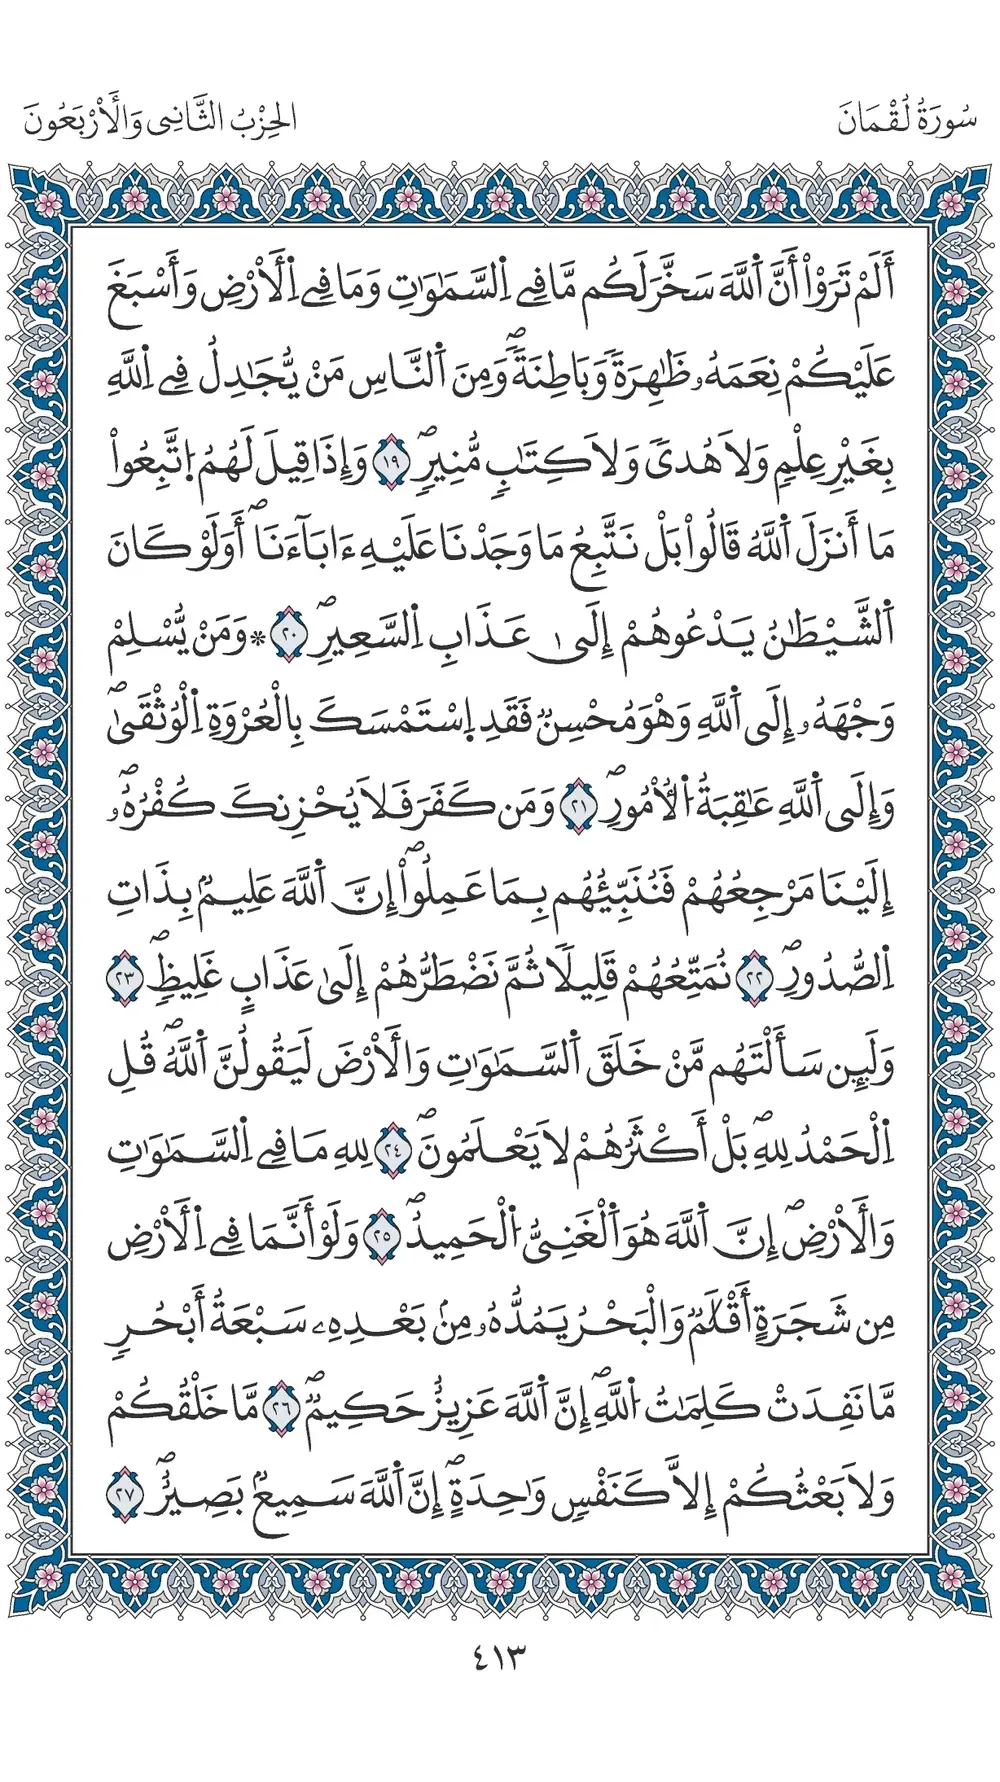 سُورَةُ لُقْمَانَ
الحِزْبُ الثَّانِي وَالْأَرْبَعُونَ
أَلَمْ تَرَوْاْ أَنَّ اَ۬للَّهَ سَخَّرَ لَكُم مَّا فِے اِ۬لسَّمَٰوَٰتِ وَمَا فِے اِ۬لْأَرْضِ وَأَسْبَغَ
عَلَيْكُمْ نِعَمَهُۥ ظَٰهِرَةٗ وَبَاطِنَةٗۖ وَمِنَ اَ۬لنَّاسِ مَنْ يُّجَٰدِلُ فِے اِ۬للَّهِ
بِغَيْرِ عِلْمٖ وَلَا هُديٗ وَلَا كِتَٰبٖ مُّنِيرٖۖ ١٩ وَإِذَا قِيلَ لَهُمُ اُ۪تَّبِعُواْ
مَا أَنزَلَ اَ۬للَّهُ قَالُواْ بَلْ نَتَّبِعُ مَا وَجَدْنَا عَلَيْهِ ءَابَآءَنَاۖ أَوَلَوْ كَانَ
اَ۬لشَّيْطَٰنُ يَدْعُوهُمْ إِلَىٰ عَذَابِ اِ۬لسَّعِيرِۖ ٢٠ * وَمَنْ يُّسْلِمْ
وَجْهَهُۥ إِلَى اَ۬للَّهِ وَهْوَ مُحْسِنٞ فَقَدِ اِ۪سْتَمْسَكَ بِالْعُرْوَةِ اِ۬لْوُثْقَىٰۖ
وَإِلَى اَ۬للَّهِ عَٰقِبَةُ اُ۬لْأُمُورِۖ ٢١ وَمَن كَفَرَ فَلَا يُحْزِنكَ كُفْرُهُۥۖ
إِلَيْنَا مَرْجِعُهُمْ فَنُنَبِّئُهُم بِمَا عَمِلُواْۖ إِنَّ اَ۬للَّهَ عَلِيمُۢ بِذَاتِ
اِ۬لصُّدُورِۖ ٢٢ نُمَتِّعُهُمْ قَلِيلاٗ ثُمَّ نَضْطَرُّهُمْ إِلَىٰ عَذَابٍ غَلِيظٖۖ ٢٣
وَلَئِن سَأَلْتَهُم مَّنْ خَلَقَ اَ۬لسَّمَٰوَٰتِ وَالْأَرْضَ لَيَقُولُنَّ اَ۬للَّهُۖ قُلِ
اِ۬لْحَمْدُ لِلهِۖ بَلْ أَكْثَرُهُمْ لَا يَعْلَمُونَۖ ٢٤ لِلهِ مَا فِے اِ۬لسَّمَٰوَٰتِ
وَالْأَرْضِۖ إِنَّ اَ۬للَّهَ هُوَ اَ۬لْغَنِيُّ اُ۬لْحَمِيدُۖ ٢٥ وَلَوْ أَنَّمَا فِے اِ۬لْأَرْضِ
مِن شَجَرَةٍ أَقْلَٰمٞ وَالْبَحْرُ يَمُدُّهُۥ مِنۢ بَعْدِهِۦ سَبْعَةُ أَبْحُرٖ
مَّا نَفِدَتْ كَلِمَٰتُ اُ۬للَّهِۖ إِنَّ اَ۬للَّهَ عَزِيزٌ حَكِيمٞۖ ٢٦ مَّا خَلْقُكُمْ
وَلَا بَعْثُكُمْ إِلَّا كَنَفْسٖ وَٰحِدَةٍۖ إِنَّ اَ۬للَّهَ سَمِيعُۢ بَصِيرٌۖ ٢٧
٤١٣